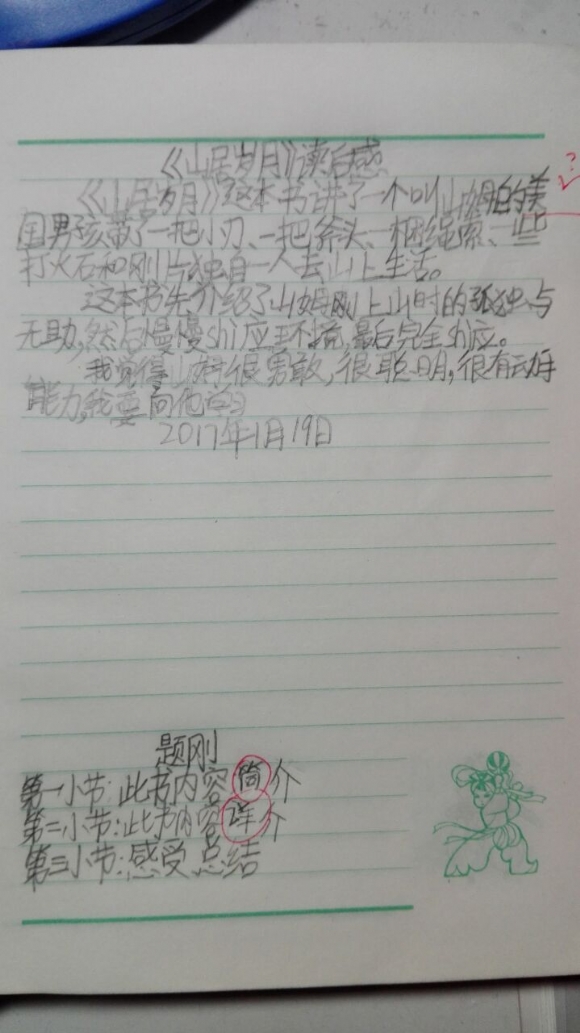 《山居岁月》读后感
《山居岁月》这本书讲了一个叫山姆的美
国男孩带了一把小刀、一把斧头、一捆绳索、一些
打火石和刚片独自一人去山上生活。
这本书先介绍了山姆刚上山时的孤独与
无助,然后慢慢shi应环境,最后完全shi应。
我觉得山姆很勇敢,很聪明,很有动手
能力,我要向他学习
2017年1月19日
题刚
第一小节:此书内容简介
第二小节:此书内容详介
第三小节:感受总结
?